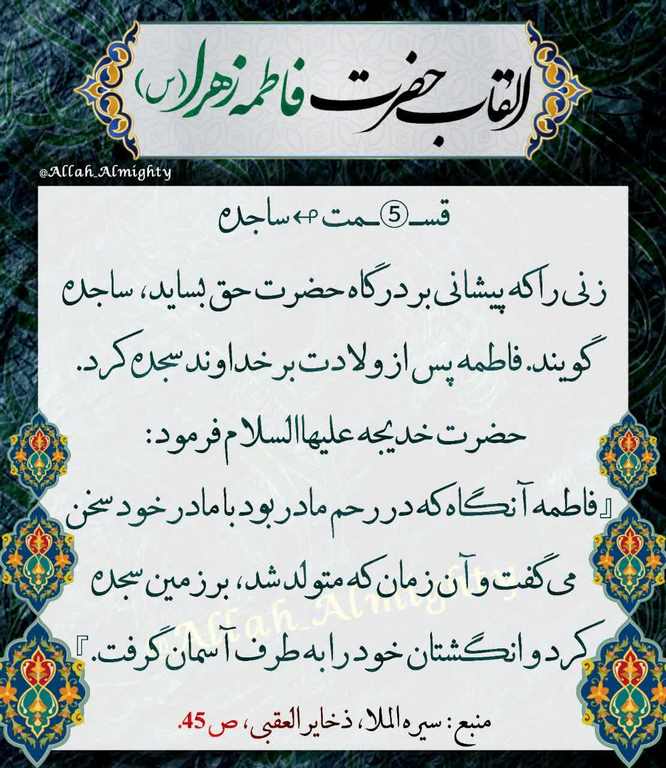 القاب حضرت فاطمه زهرا (س)
@Allah_Almighty
قسـ⑤ـمت ↫ ساجده
زنی را که پیشانی بر درگاه حضرت حق بساید، ساجده
گویند. فاطمه پس از ولادت بر خداوند سجده کرد.
حضرت خدیجه علیهاالسلام فرمود:
『فاطمه آنگاه که در رحم مادر بود با مادر خود سخن
می‌گفت و آن زمان که متولد شد، بر زمین سجده
کرد و انگشتان خود را به طرف آسمان گرفت.』
@Allah_Almighty
منبع: سیره الملا، ذخایر العقبی، ص45.